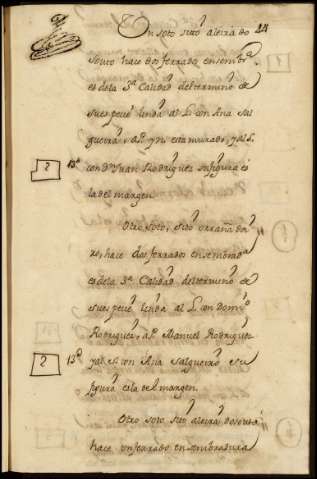 Un soto sittº aleira do 24
Souto hace dos ferrado ensembrª
es dela 3ª Calidad deltermino de
su especie linda al L con Ana Sal
gueira, al P y N. esta murado, y al S.
2 13ª con Dn Juan Rodriguez su figura es
la del margen
Otro Soto, sittº
hace dos ferrados ensembra
es dela 3ª Calidad deltermino de
su especie linda al L con Domº
Rodriguez, al P. Manuel Rodriguez
2 13ª y al S. con Ana Salgueiro su
figura es la del margen.
Otro soto sittº aleira
hace un ferrado en sembradura